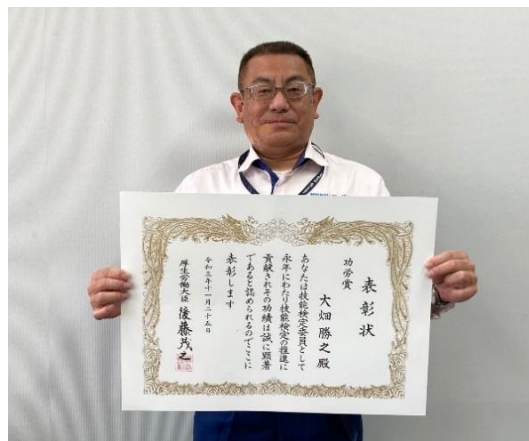 表彰状
功労賞
大畑勝之殿
あなたは技能検定委員として
永年にわたり技能検定の推進に
貢献されその功績は誠に顕著
であると認められるのでここに
表彰します
令和三年十一月二十五日
厚生労働大臣 後藤茂之